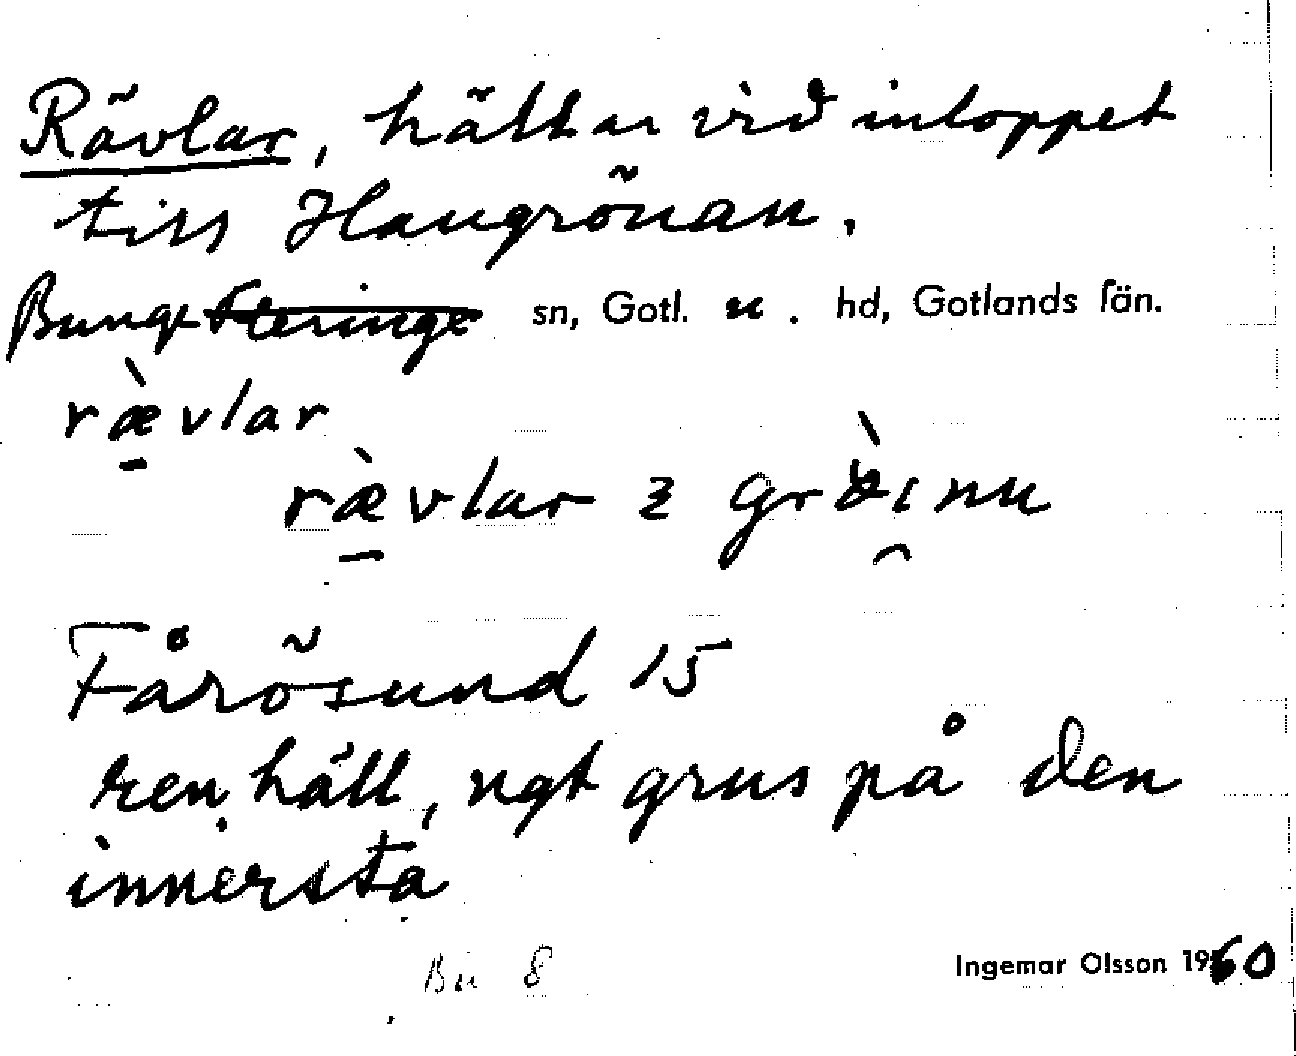 Rävlar, hällar vid inloppet
till Haugrönan.
Bunge Fleringe sn, Gotl. n. hd, Gotlands län.
rævlar
rævlar
Fårösund 15
ren häll, ngt grus på den
innersta
Bu 8
Ingemar Olsson 1960